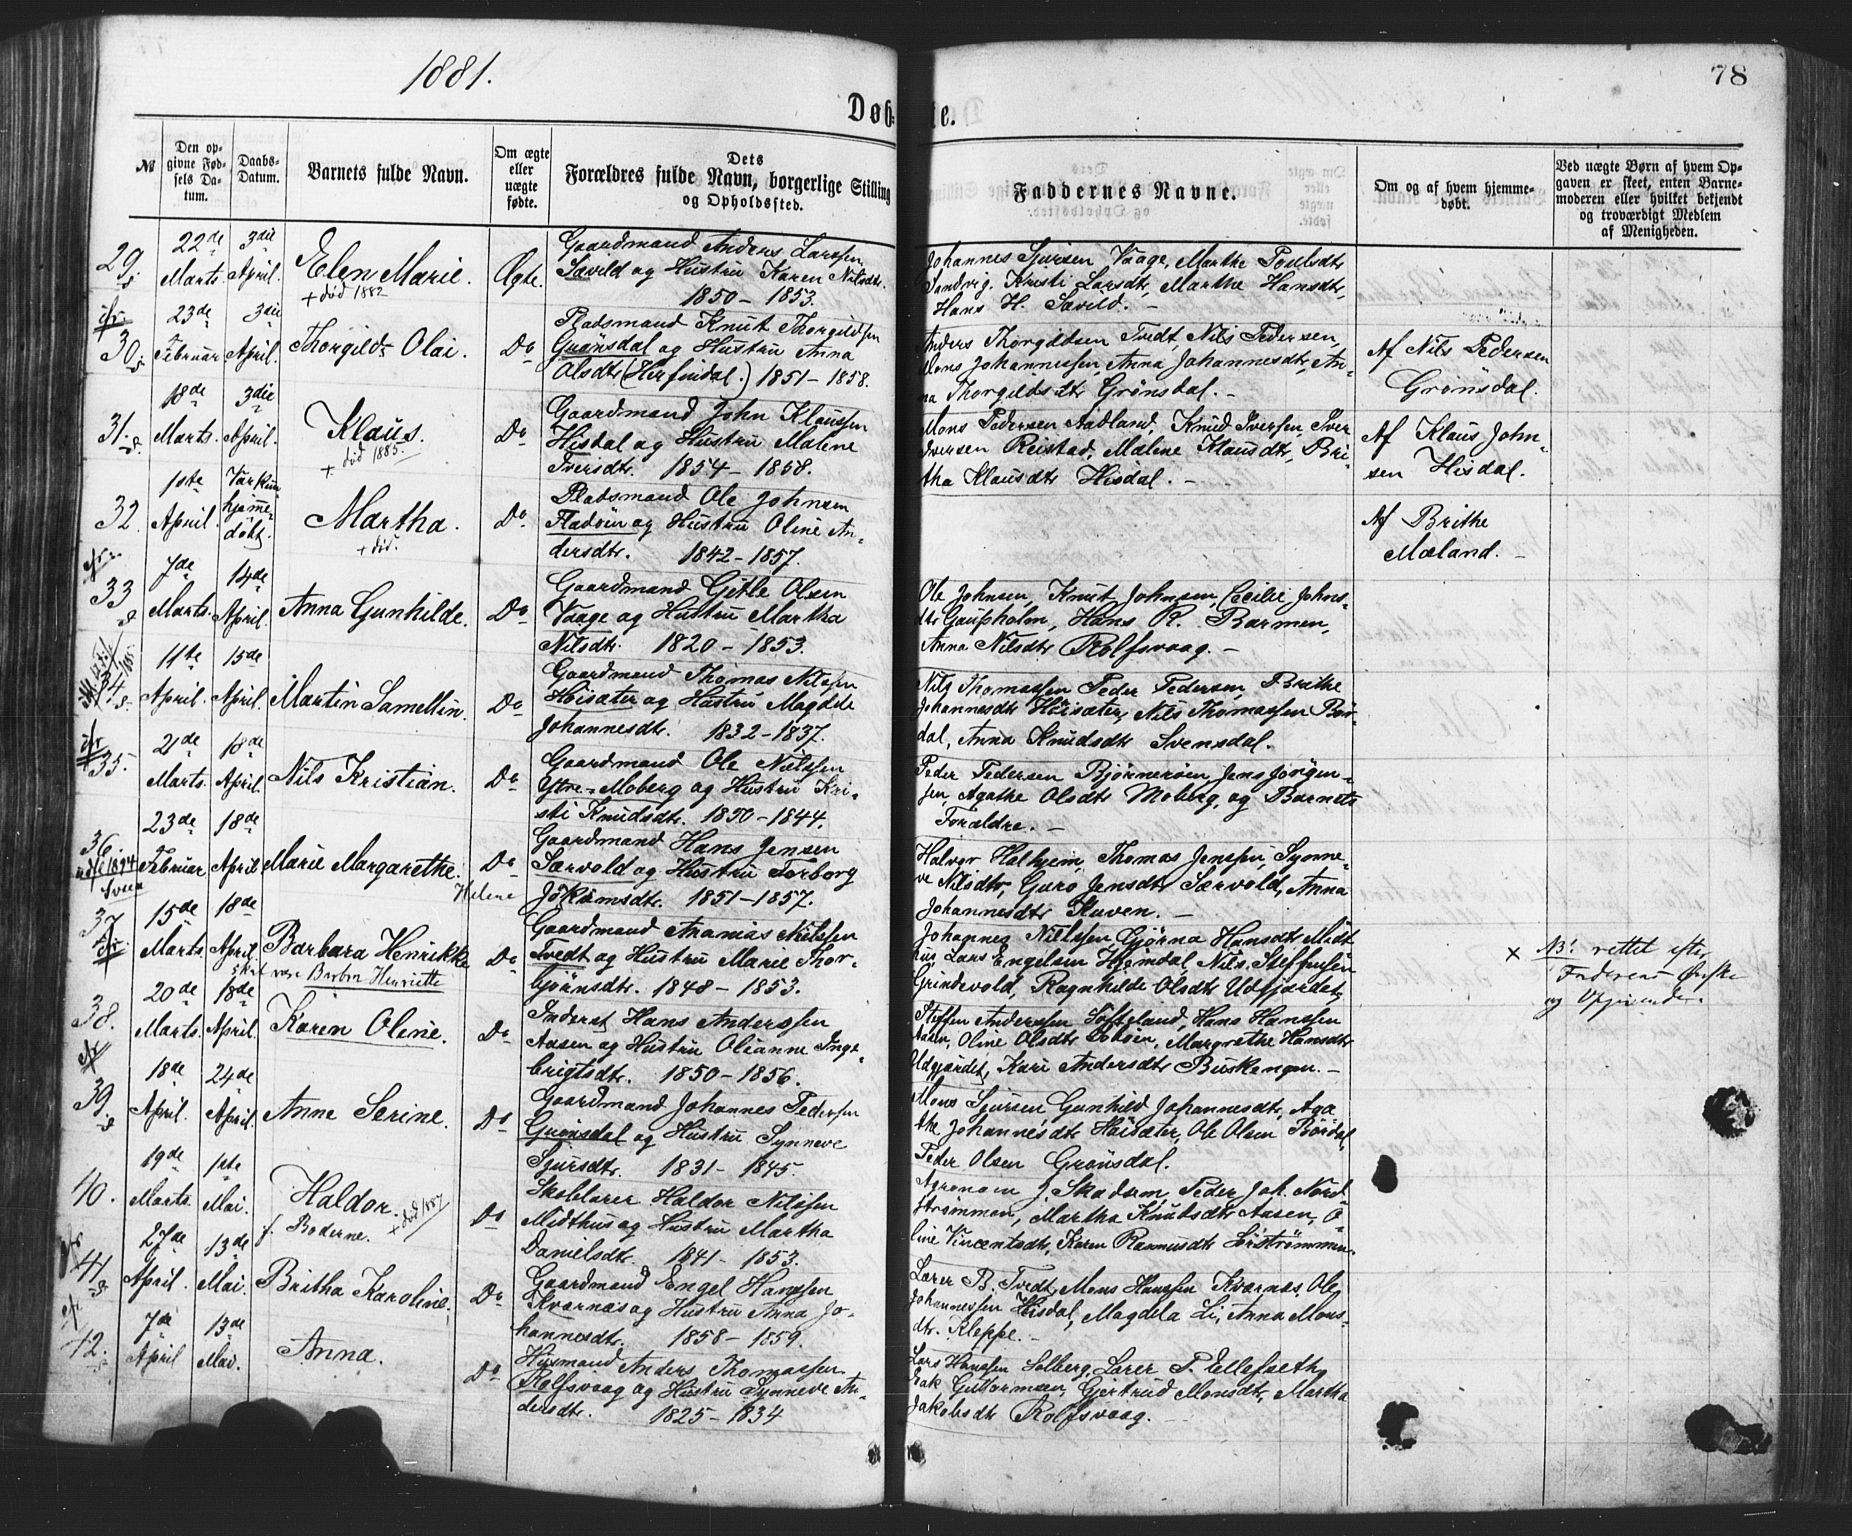 1881.
78
Døbte.
№
Den opgivne Fødsels Datum.
Daabs-Datum.
Barnets fulde Navn.
Om ægte eller uægte fødte.
Dets Forældres fulde Navn, borgerlige Stilling og Opholdssted.
Faddernes Navne.
Om og af hvem hjemmedøbt.
Ved uægte Børn af hvem Opgaven er skeet, enten Barnemoderen eller hvilket bekjendt og troværdigt Medlem af Menigheden.
29.
22de Marts.
3die April.
Elen Marie.
+ død 1882
Ægte.
Gaardmand Anders Larssen
Sævild og Hustru Karen Nilsdtr.
1850 – 1853.
Johannes Sjursen Vaage, Marthe Poulsdtr
Sandvig. Kristi Larsdtr, Marthe Hansdtr,
Hans H. Sævild. –
30.
23de Februar
3die April.
Thorgild Olai.
Do
Pladsmand Knut Thorgildsen
Grønsdal og Hustru Anna
Olsdtr (Herfindal.) 1851 – 1858.
Anders Thorgildsen Tvedt, Nils Pedersen,
Mons Johannessen, Anna Johannesdtr, An-
na Thorgildsdtr Grønsdal. –
Af Nils Pedersen
Grønsdal.
31.
18de Marts.
3die April.
Klaus.
+ død 1885.
Do
Gaardmand John Klaussen
Hisdal og Hustru Malene
Iversdtr. 1854 – 1858.
Mons Pedersen Aadland, Knud Iversen, Iver
Iversen Reistad, Malene Klausdtr, Bri-
tha Klausdtr Hisdal. –
Af Klaus John-
sen Hisdal.
32.
1ste April.
Var kun hjemmedøbt.
Martha.
+ død.
Do
Pladsmand Ole Johnsen
Fladøen og Hustru Oline An-
dersdtr. 1842 – 1857.
Af Brithe
Mæland. –
33
7de Marts.
14de April.
Anna Gunhilde.
Do
Gaardmand Gitle Olsen
Vaage og Hustru Martha
Nilsdtr. 1820 – 1853.
Ole Johnsen, Knut Johnsen, Cecilie Johns-
dtr Gaupholm, Hans R. Barmen,
Anna Nilsdtr Rolfsvaag. –
34
11te April.
15de April.
Martin Samellin.
Do
Gaardmand Thomas Nilssen
Høisæter og Hustru Magdele
Johannesdtr. 1832 – 1837.
Nils Thomassen Peder Pedersen, Brithe
Johannesdtr Høisæter, Nils Thomassen Bør-
dal, Anna Knudsdtr Svensdal.
35.
21de Marts.
18de April.
Nils Kristian.
Do
Gaardmand Ole Nilssen
Ytre-Moberg og Hustru Kri-
sti Knudsdtr. 1850 – 1844.
Peder Pedersen Bjørnerøen, Jens Jørgen-
sen, Agathe Olsdtr Moberg, og Barnets
Forældre. –
36.
23de Februar
18de April
Marie Margarethe.
Helene
Do
Gaardmand Hans Jensen
Særvold og Hustru Torborg
Jokumsdtr. 1851 – 1857.
Halvor Halhjem, Thomas Jensen, Synne-
ve Nilsdtr, Guro Jensdtr Særvold, Anna
Johannesdtr Skaven. –
37
15de Marts.
18de April.
Barbara Henrikke
skal være Barbra Henriette
Do
Gaardmand Ananias Nilssen
Tvedt og Hustru Marie Thor-
bjørnsdtr. 1848 – 1853.
Johannes Nilssen, Gjørna Hansdtr Midt
hus Lars Engelsen Hjemdal, Nils Steffensen
Grindevold, Ragnhilde Olsdtr Udgjærdet,
× NB! rettet efter
Faderens Ønske
og Opgivende.
38.
20de Marts.
18de April.
Karen Oline.
Do
Inderst Hans Anderssen
Aasen og Hustru Olianne Inge-
brigtsdtr. 1850 – 1856.
Steffen Anderssen Søfteland, Hans Hanssen
Aasen, Oline Olsdtr, Margrethe Hansdtr
Udgjærdet, Kari Andersdtr Buskengen. –
39.
18de April.
24de April.
Anne Serine.
Do
Gaardmand Johannes Pedersen
Grønsdal og Hustru Synneve
Sjursdtr. 1831 – 1845.
Mons Sjursen, Gunhild Johannesdtr, Aga
the Johannesdtr Høisæter, Ole Olsen Børdal,
Peder Olsen Grønsdal.
40.
19de Marts.
1ste Mai.
Haldor.
+ død 1887
Do
Skolelærer Haldor Nilssen
Midthus og Hustru Martha
Danielsdtr. 1841 – 1853.
Agronom J. Skadsem, Peder Joh. Nord
strømmen, Martha Knutsdtr Aasen, O-
line Vincentsdtr, Karen Rasmusdtr Sørstrømmen.
41.
27de April.
13de Mai.
Britha Karoline.
Do
Gaardmand Engel Hanssen
Kvarnæs og Hustru Anna Jo-
hannesdtr. 1858 – 1859.
Lærer B. Tvedt, Mons Hanssen Kvarnæs, Ole
Johannessen Hisdal, Magdela Li, Anna Mons-
dtr. Kleppe. –
42.
7de April
13de Mai.
Anna.
Do
Husmand Anders Thomassen
Rolfsvaag og Hustru Synneve An-
dersdtr. 1825 – 1834
Lars Hanssen Solberg, Lærer P. Ellefseth,
Isak Guttormsen, Gjertrud Monsdtr, Martha
Jakobsdtr Rolfsvaag. –